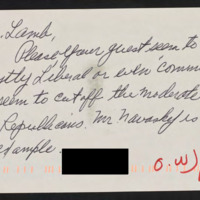 . Lamb,
Please your guest seem to
stly Liberal or even 'comm
seem to cut off the moderate
Republicans. Mr Navasky is
example.
O.W)